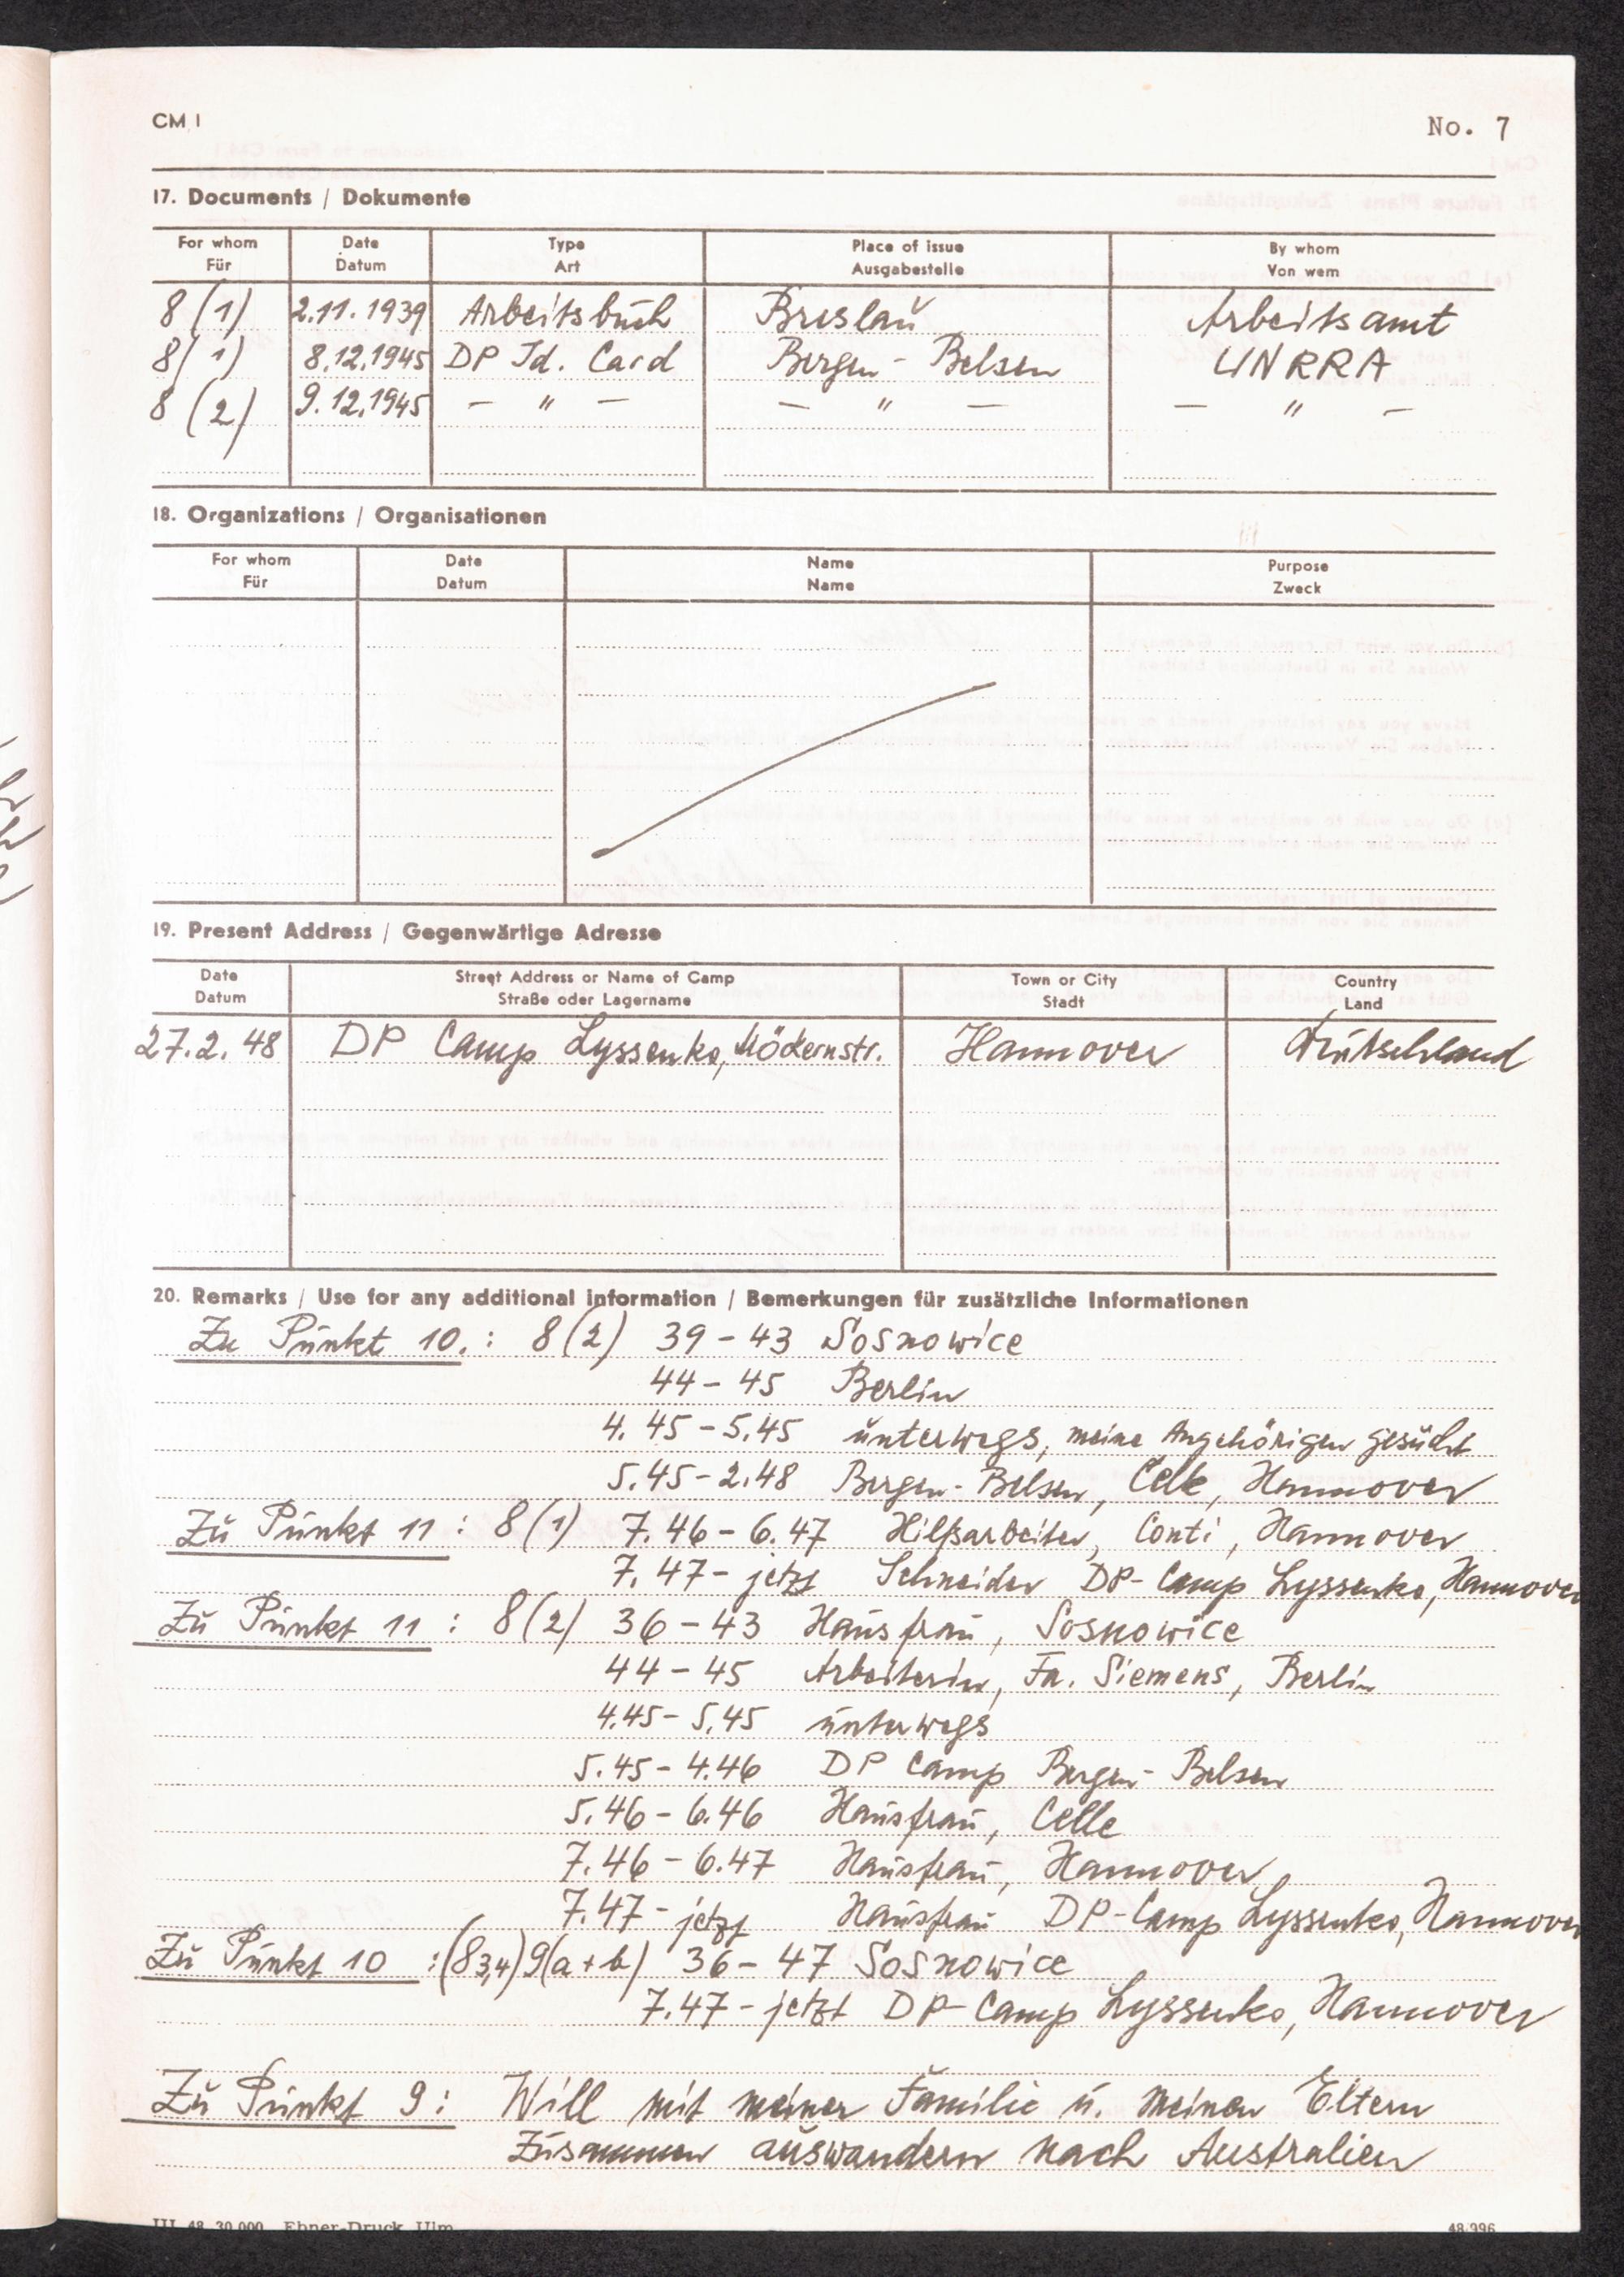 CM 1
No. 7
17. Documents / Dokumente
For whom Date Type Place of issue By whom
Für Datum Art Ausgabestelle Von wem
8 (1) 2.11.1939 Arbeitsbuch Breslau Arbeitsamt
8 (1) 8.12.1945 DP Id. Card Bergen - Belsen UNRRA
8 (2) 9.12.1945 - " - - " - - " -
18. Organizations / Organisationen
For whom Date Name Purpose
Für Datum Name Zweck
19. Present Address / Gegenwärtige Adresse
Date Street Address or Name of Camp Town or City Country
Datum Straße oder Lagername Stadt Land
27.2.48 DP Camp Lyssenko, Möckernstr. Hannover Deutschland
20. Remarks / Use for any additional information / Bemerkungen für zusätzliche Informationen
Zu Punkt 10.: 8 (2) 39 - 43 Sosnowice
44 - 45 Berlin
4.45 - 5.45 unterwegs, meine Angehörigen gesucht
5.45 - 2.48 Bergen-Belsen, Celle, Hannover
Zu Punkt 11: 8 (1) 7.46 - 6.47 Hilfsarbeiter, Conti, Hannover
7.47 - jetzt Schneider DP-Camp Lyssenko, Hannover
Zu Punkt 11: 8 (2) 36 - 43 Hausfrau, Sosnowice
44 - 45 Arbeiterin, Fa. Siemens, Berlin
4.45 - 5.45 unterwegs
5.45 - 4.46 DP Camp Bergen-Belsen
5.46 - 6.46 Hausfrau, Celle
7.46 - 6.47 Hausfrau, Hannover
7.47 - jetzt Hausfrau DP-Camp Lyssenko, Hannover
Zu Punkt 10 : (8 3,4) 9(a+b) 36 - 47 Sosnowice
7.47 - jetzt DP-Camp Lyssenko, Hannover
Zu Punkt 9: Will mit meiner Familie u. meinen Eltern
zusammen auswandern nach Australien
III 48 30 000 Ebner-Druck Ulm
48/996